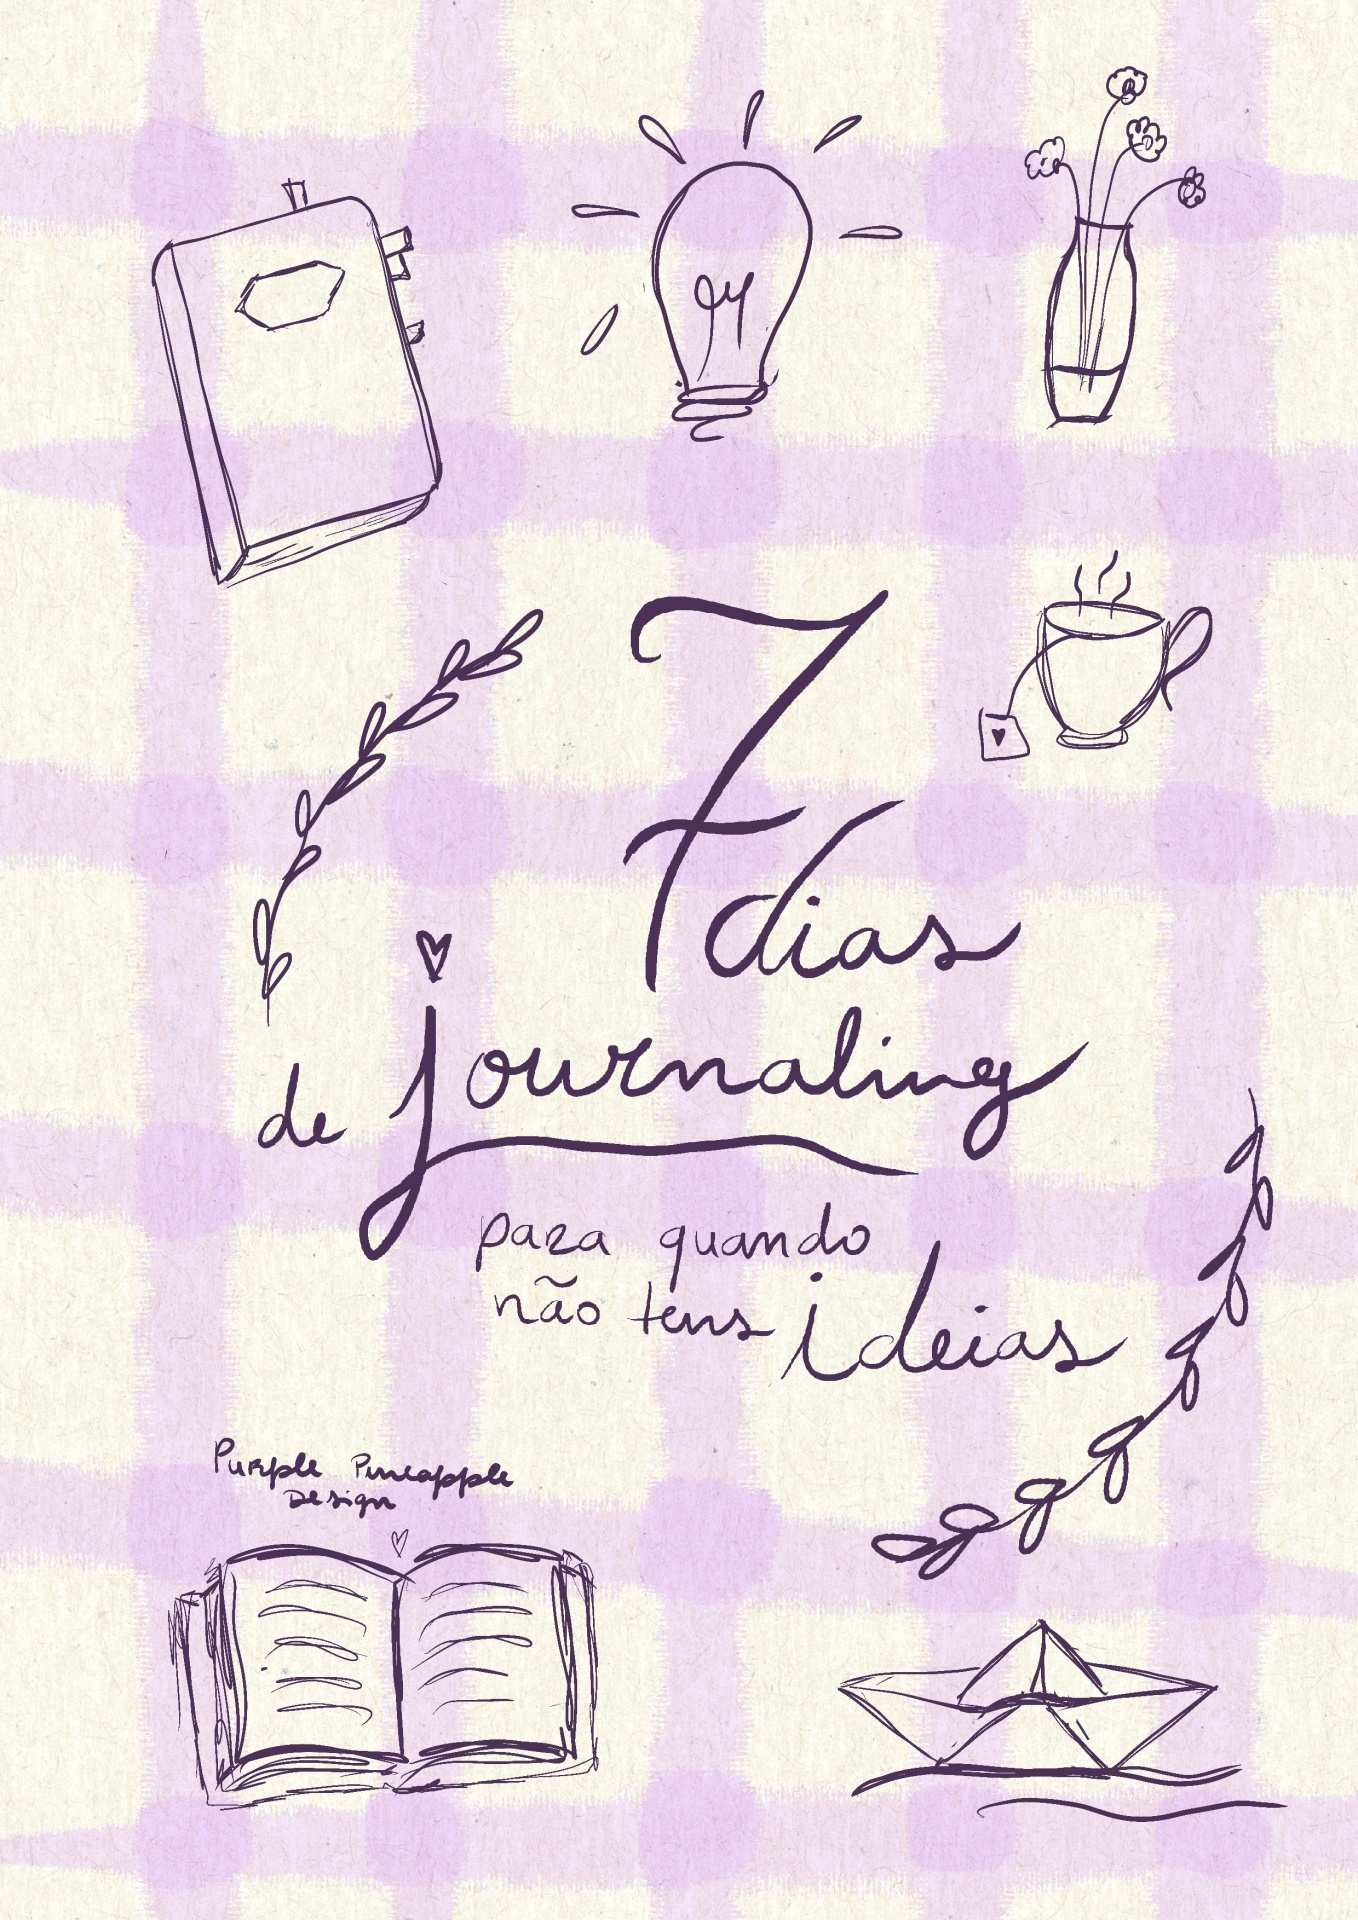 7 dias
de journaling
para quando
não tens ideias
Purple Pineapple
Design